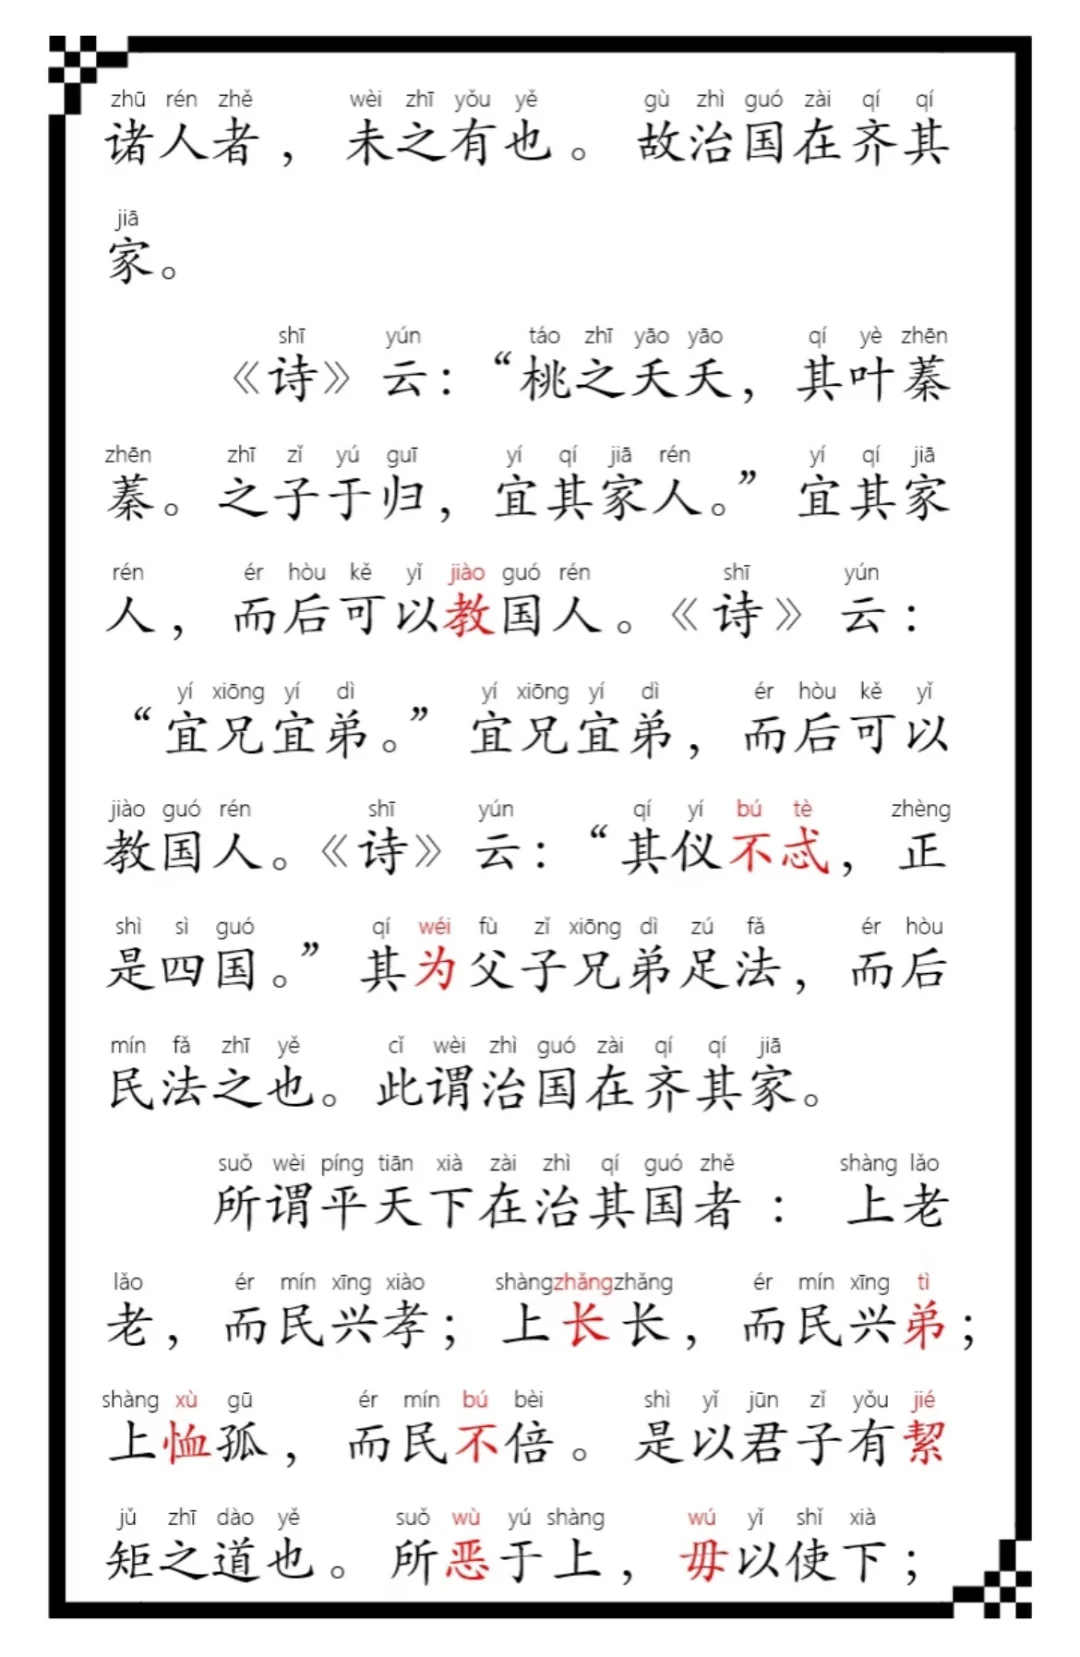 zhū rén zhě wèi zhī yǒu yě gù zhì guó zài qí qí
诸人者，未之有也。故治国在齐其
jiā
家。
shī yún táo zhī yāo yāo qí yè zhēn
《诗》云：“桃之夭夭，其叶蓁
zhēn zhī zǐ yú guī yí qí jiā rén yí qí jiā
蓁。之子于归，宜其家人。”宜其家
rén ér hòu kě yǐ jiào guó rén shī yún
人，而后可以教国人。《诗》云：
yí xiōng yí dì yí xiōng yí dì ér hòu kě yǐ
“宜兄宜弟。”宜兄宜弟，而后可以
jiào guó rén shī yún qí yí bú tè zhèng
教国人。《诗》云：“其仪不忒，正
shì sì guó qí wéi fù zǐ xiōng dì zú fǎ ér hòu
是四国。”其为父子兄弟足法，而后
mín fǎ zhī yě cǐ wèi zhì guó zài qí qí jiā
民法之也。此谓治国在齐其家。
suǒ wèi píng tiān xià zài zhì qí guó zhě shàng lǎo
所谓平天下在治其国者：上老
lǎo ér mín xīng xiào shàng zhǎng zhǎng ér mín xīng tì
老，而民兴孝；上长长，而民兴弟；
shàng xù gū ér mín bú bèi shì yǐ jūn zǐ yǒu jié
上恤孤，而民不倍。是以君子有絜
jǔ zhī dào yě suǒ wù yú shàng wú yǐ shǐ xià
矩之道也。所恶于上，毋以使下；